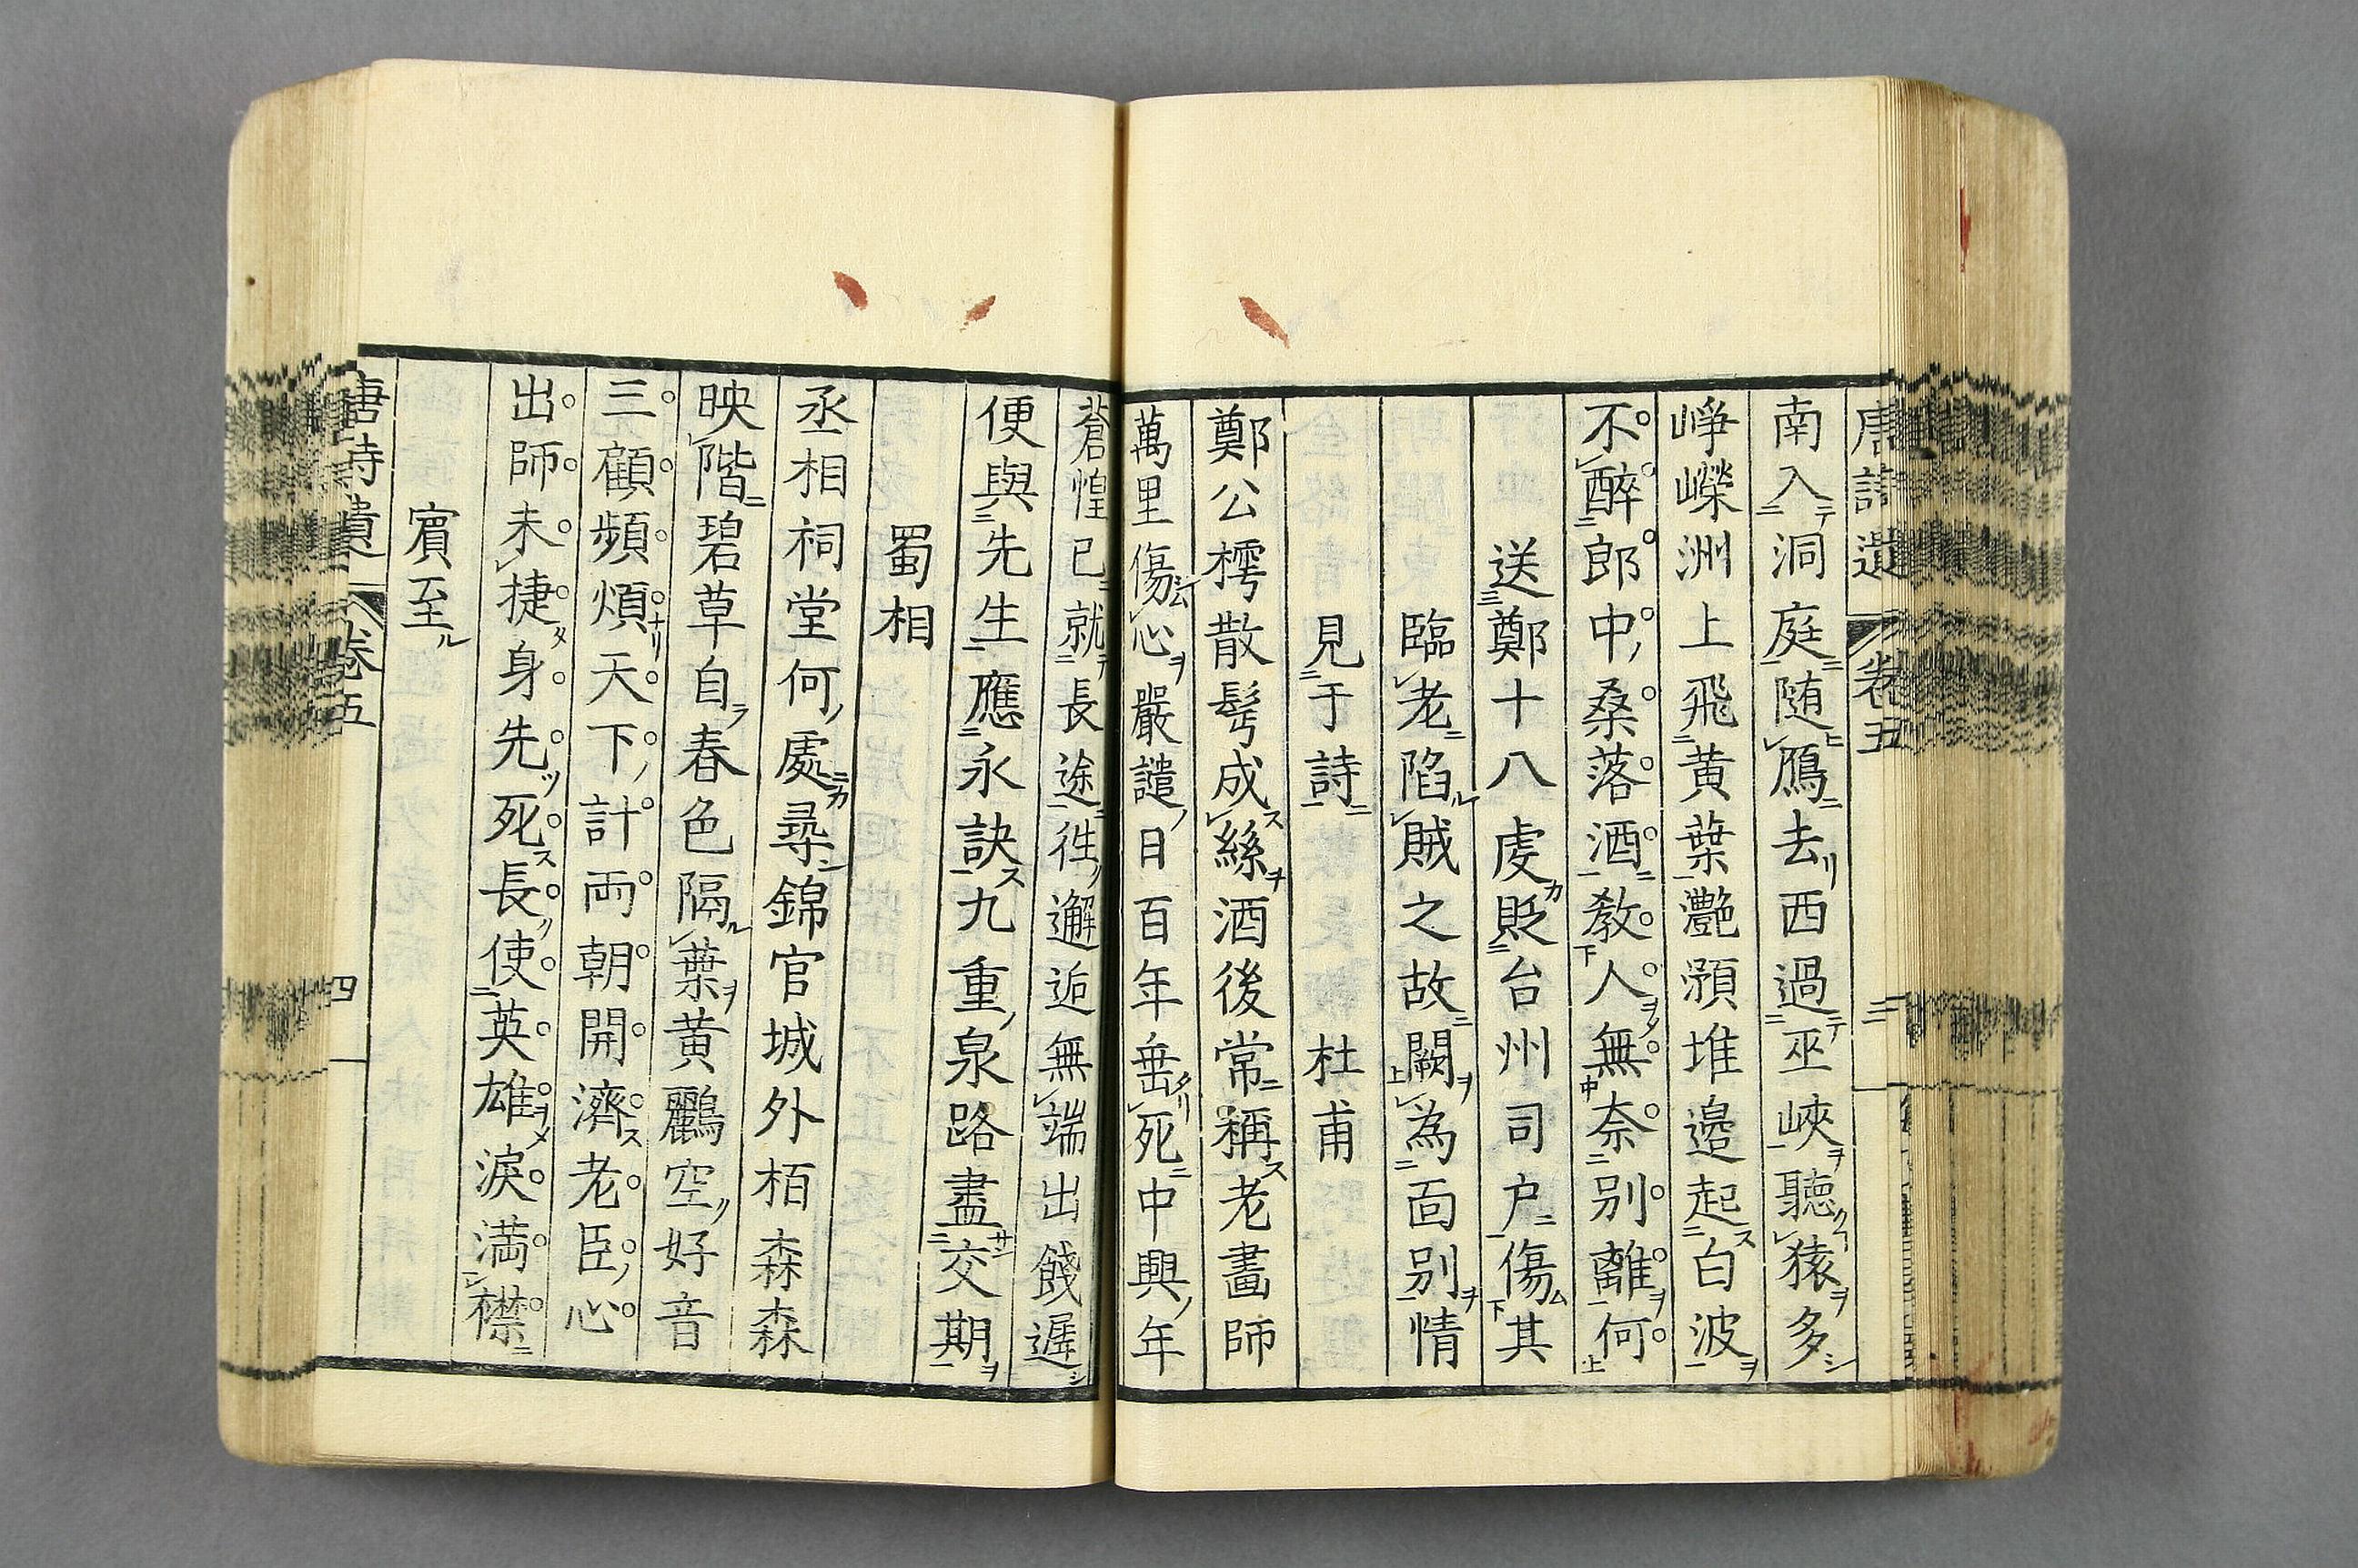 唐詩遺 卷五 三
南入洞庭随鴈去西過巫峽聽猿多
崢嶸洲上飛黄葉灩澦堆邉起白波
不醉郎中桑落酒教人無奈别離何
送鄭十八虔貶台州司户傷其
臨老陷賊之故闕為面别情
見于詩 杜甫
鄭公樗散鬂成絲酒後常稱老畵師
萬里傷心嚴譴日百年垂死中興年
蒼惶已就長途徃邂逅無端出餞遲
便與先生應永訣九重泉路盡交期
蜀相
丞相祠堂何處尋錦官城外栢森森
映階碧草自春色隔葉黄鸝空好音
三顧頻煩天下計兩朝開濟老臣心
出師未捷身先死長使英雄淚満襟
賓至
唐詩遺 卷五 四